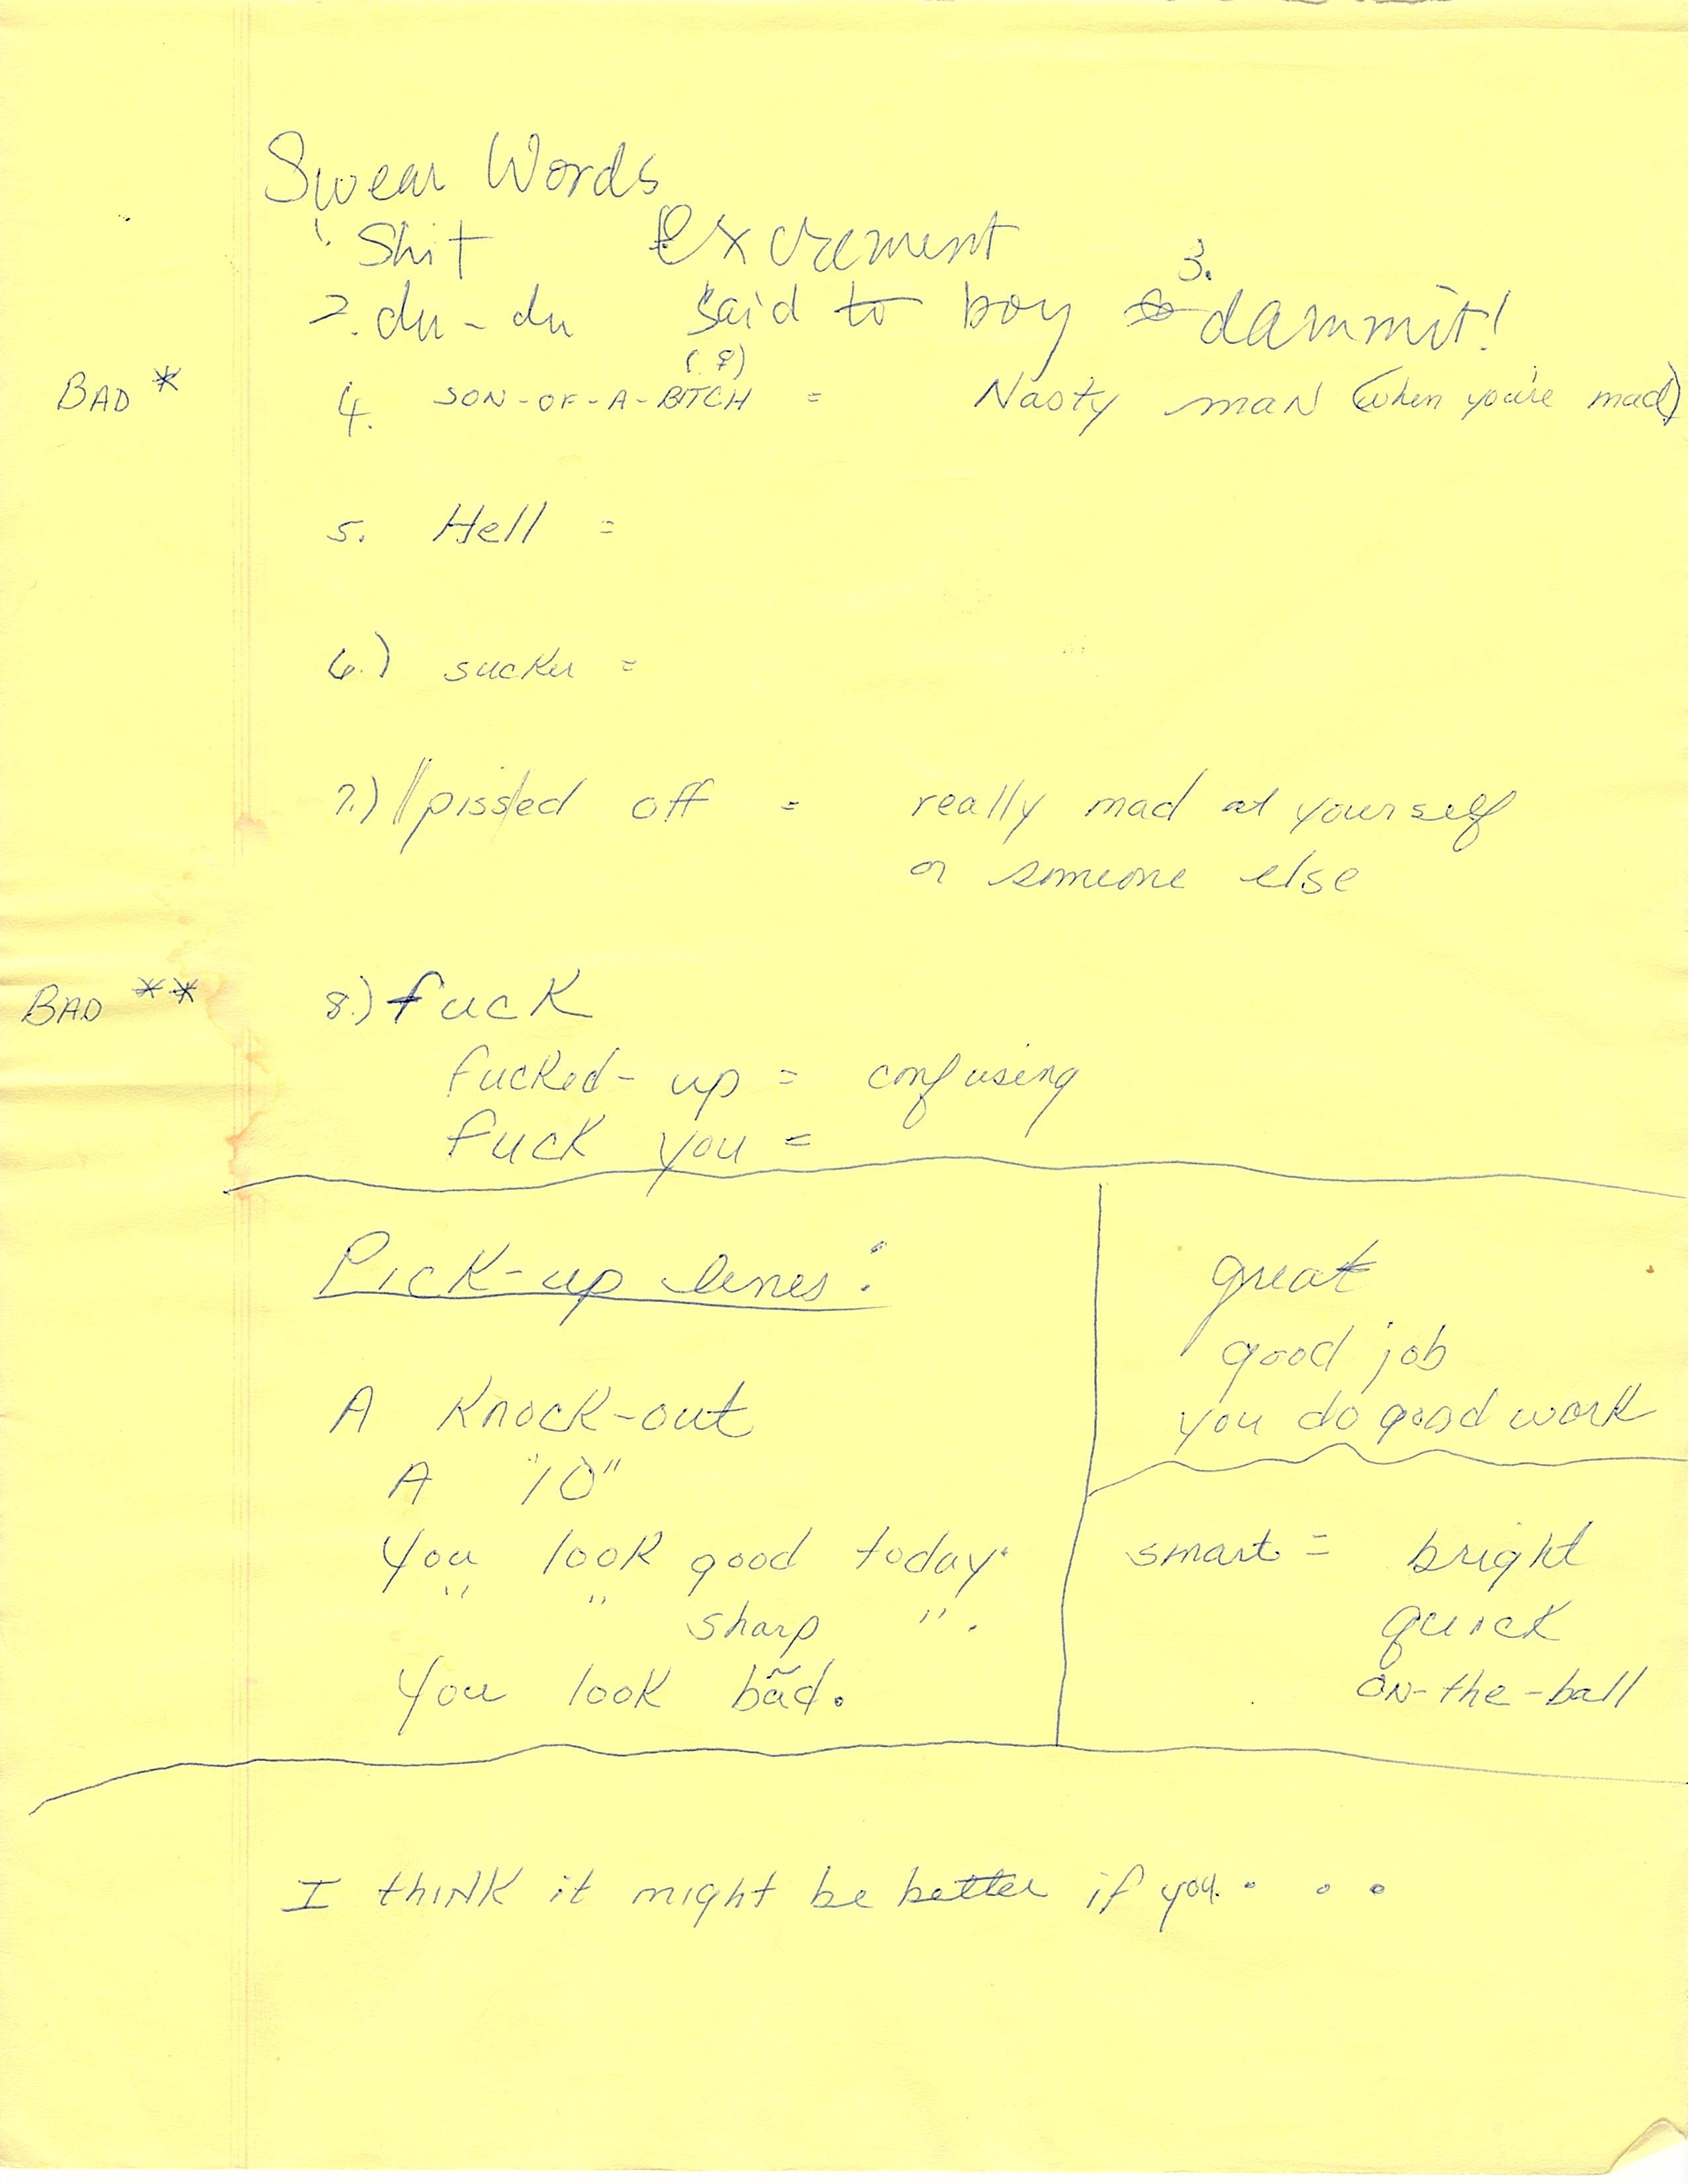 Swear Words
1. Shit Excrement
2. du-du said to boy 3. dammit!
(♀)
BAD * 4. SON-OF-A-BITCH = Nasty man (when you're mad)
5. Hell =
6.) sucker =
7.) pissed off = really mad at yourself
or someone else
BAD ** 8.) fuck
fucked-up = confusing
fuck you =
Pick-up lines:
A Knock-out
A "10"
You look good today.
" " sharp ".
You look bãd.
great
good job
you do good work
smart = bright
quick
on-the-ball
I think it might be better if you. . . .